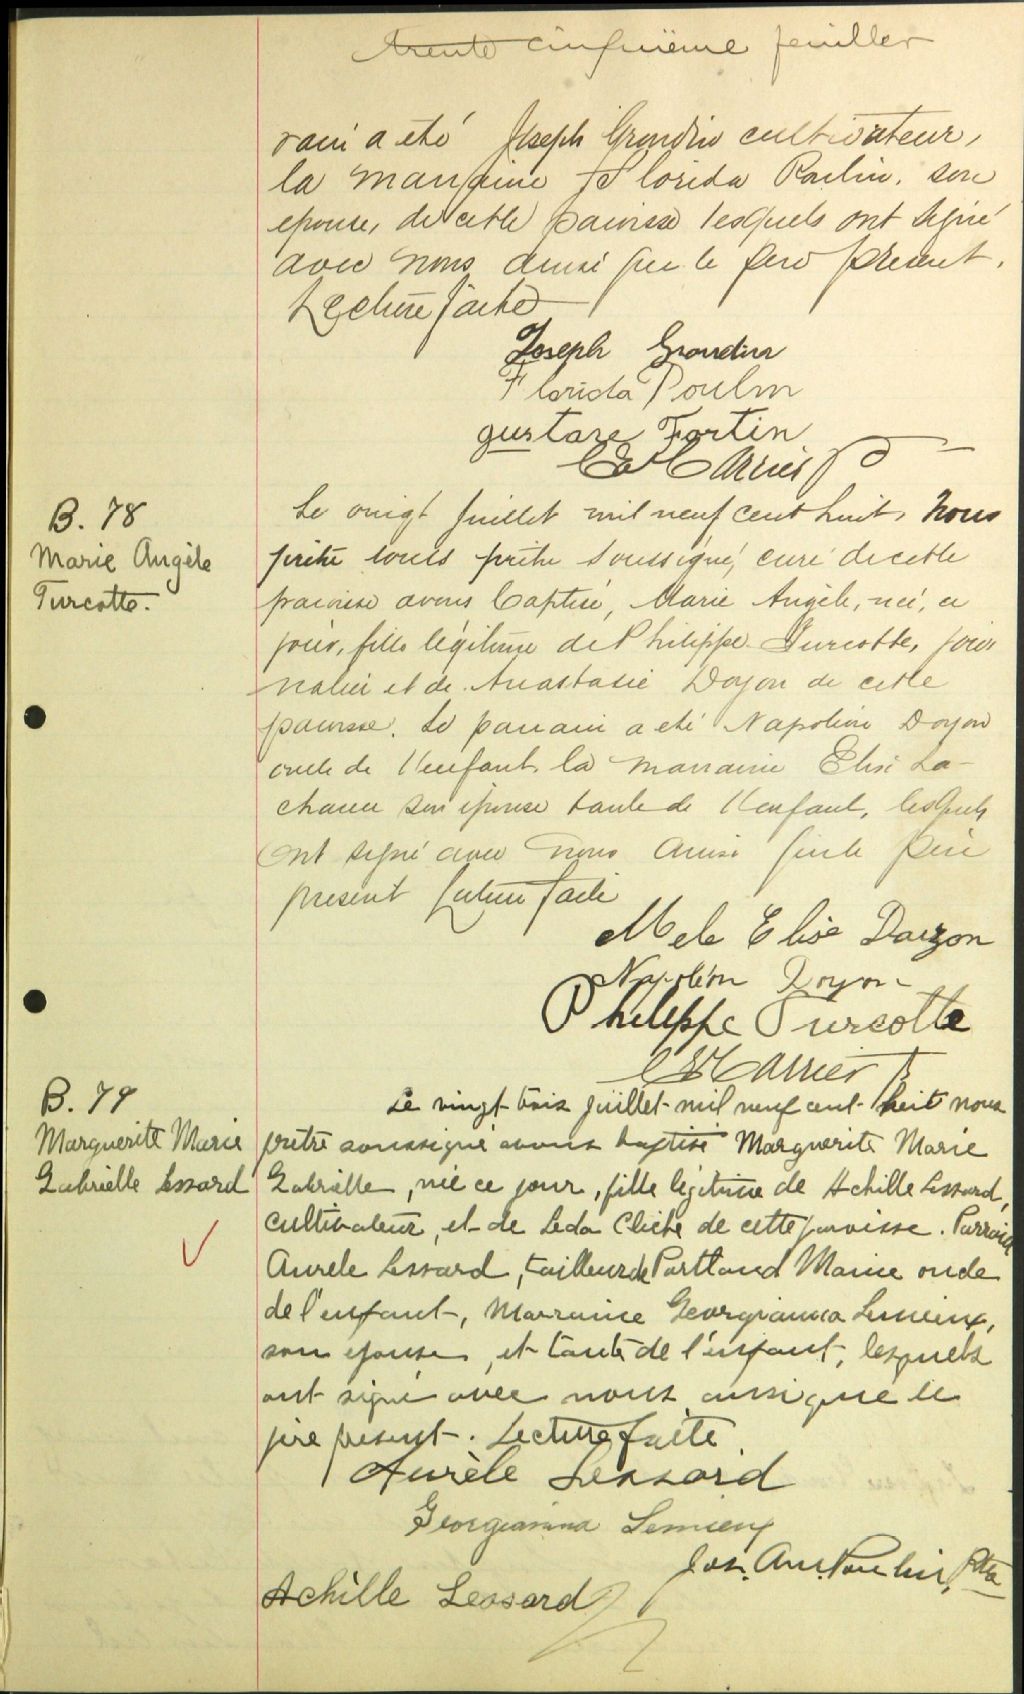 trente cinquième feuillet
rain a été Joseph Grondin cultivateur,
la marraine Florida Poulin, son
épouse, de cette paroisse lesquels ont signé
avec nous ainsi que le père présent.
Lecture faite
Joseph Grondin
Florida Poulin
gustave Fortin
B. 78
Marie Angèle
Turcotte.
Le vingt Juillet mil neuf cent huit Nous
prêtre soussigné, curé de cette
paroisse avons baptisé, Marie Angèle, née, ce
jour, fille légitime de Philippe Turcotte, jour
nalier et de Anastasie Doyon de cette
paroisse. Le parrain a été Napoléon Doyon
oncle de l'enfant, la marraine Elise La-
chance son épouse tante de l'enfant, lesquels
ont signé avec nous ainsi que le père
présent Lecture faite
Elise Doyon
Napoléon Doyon
Philippe Turcotte
B. 79
Marguerite Marie
Gabrielle Lessard
Le vingt-trois juillet mil neuf cent-huit nous
prêtre soussigné avons baptisé Marguerite Marie
Gabrielle, née ce jour, fille légitime de Achille Lessard,
cultivateur, et de Leda Cliche de cette paroisse. Parrain
Aurele Lessard, tailleur de Portland Maine oncle
de l'enfant, Marraine Georgianna Lemieux,
son épouse, et tante de l'enfant, lesquels
ont signé avec nous ainsi que le
père présent. Lecture faite
Aurèle Lessard
Georgianna Lemieux
Jos. Poulin, Ptre
Achille Lessard